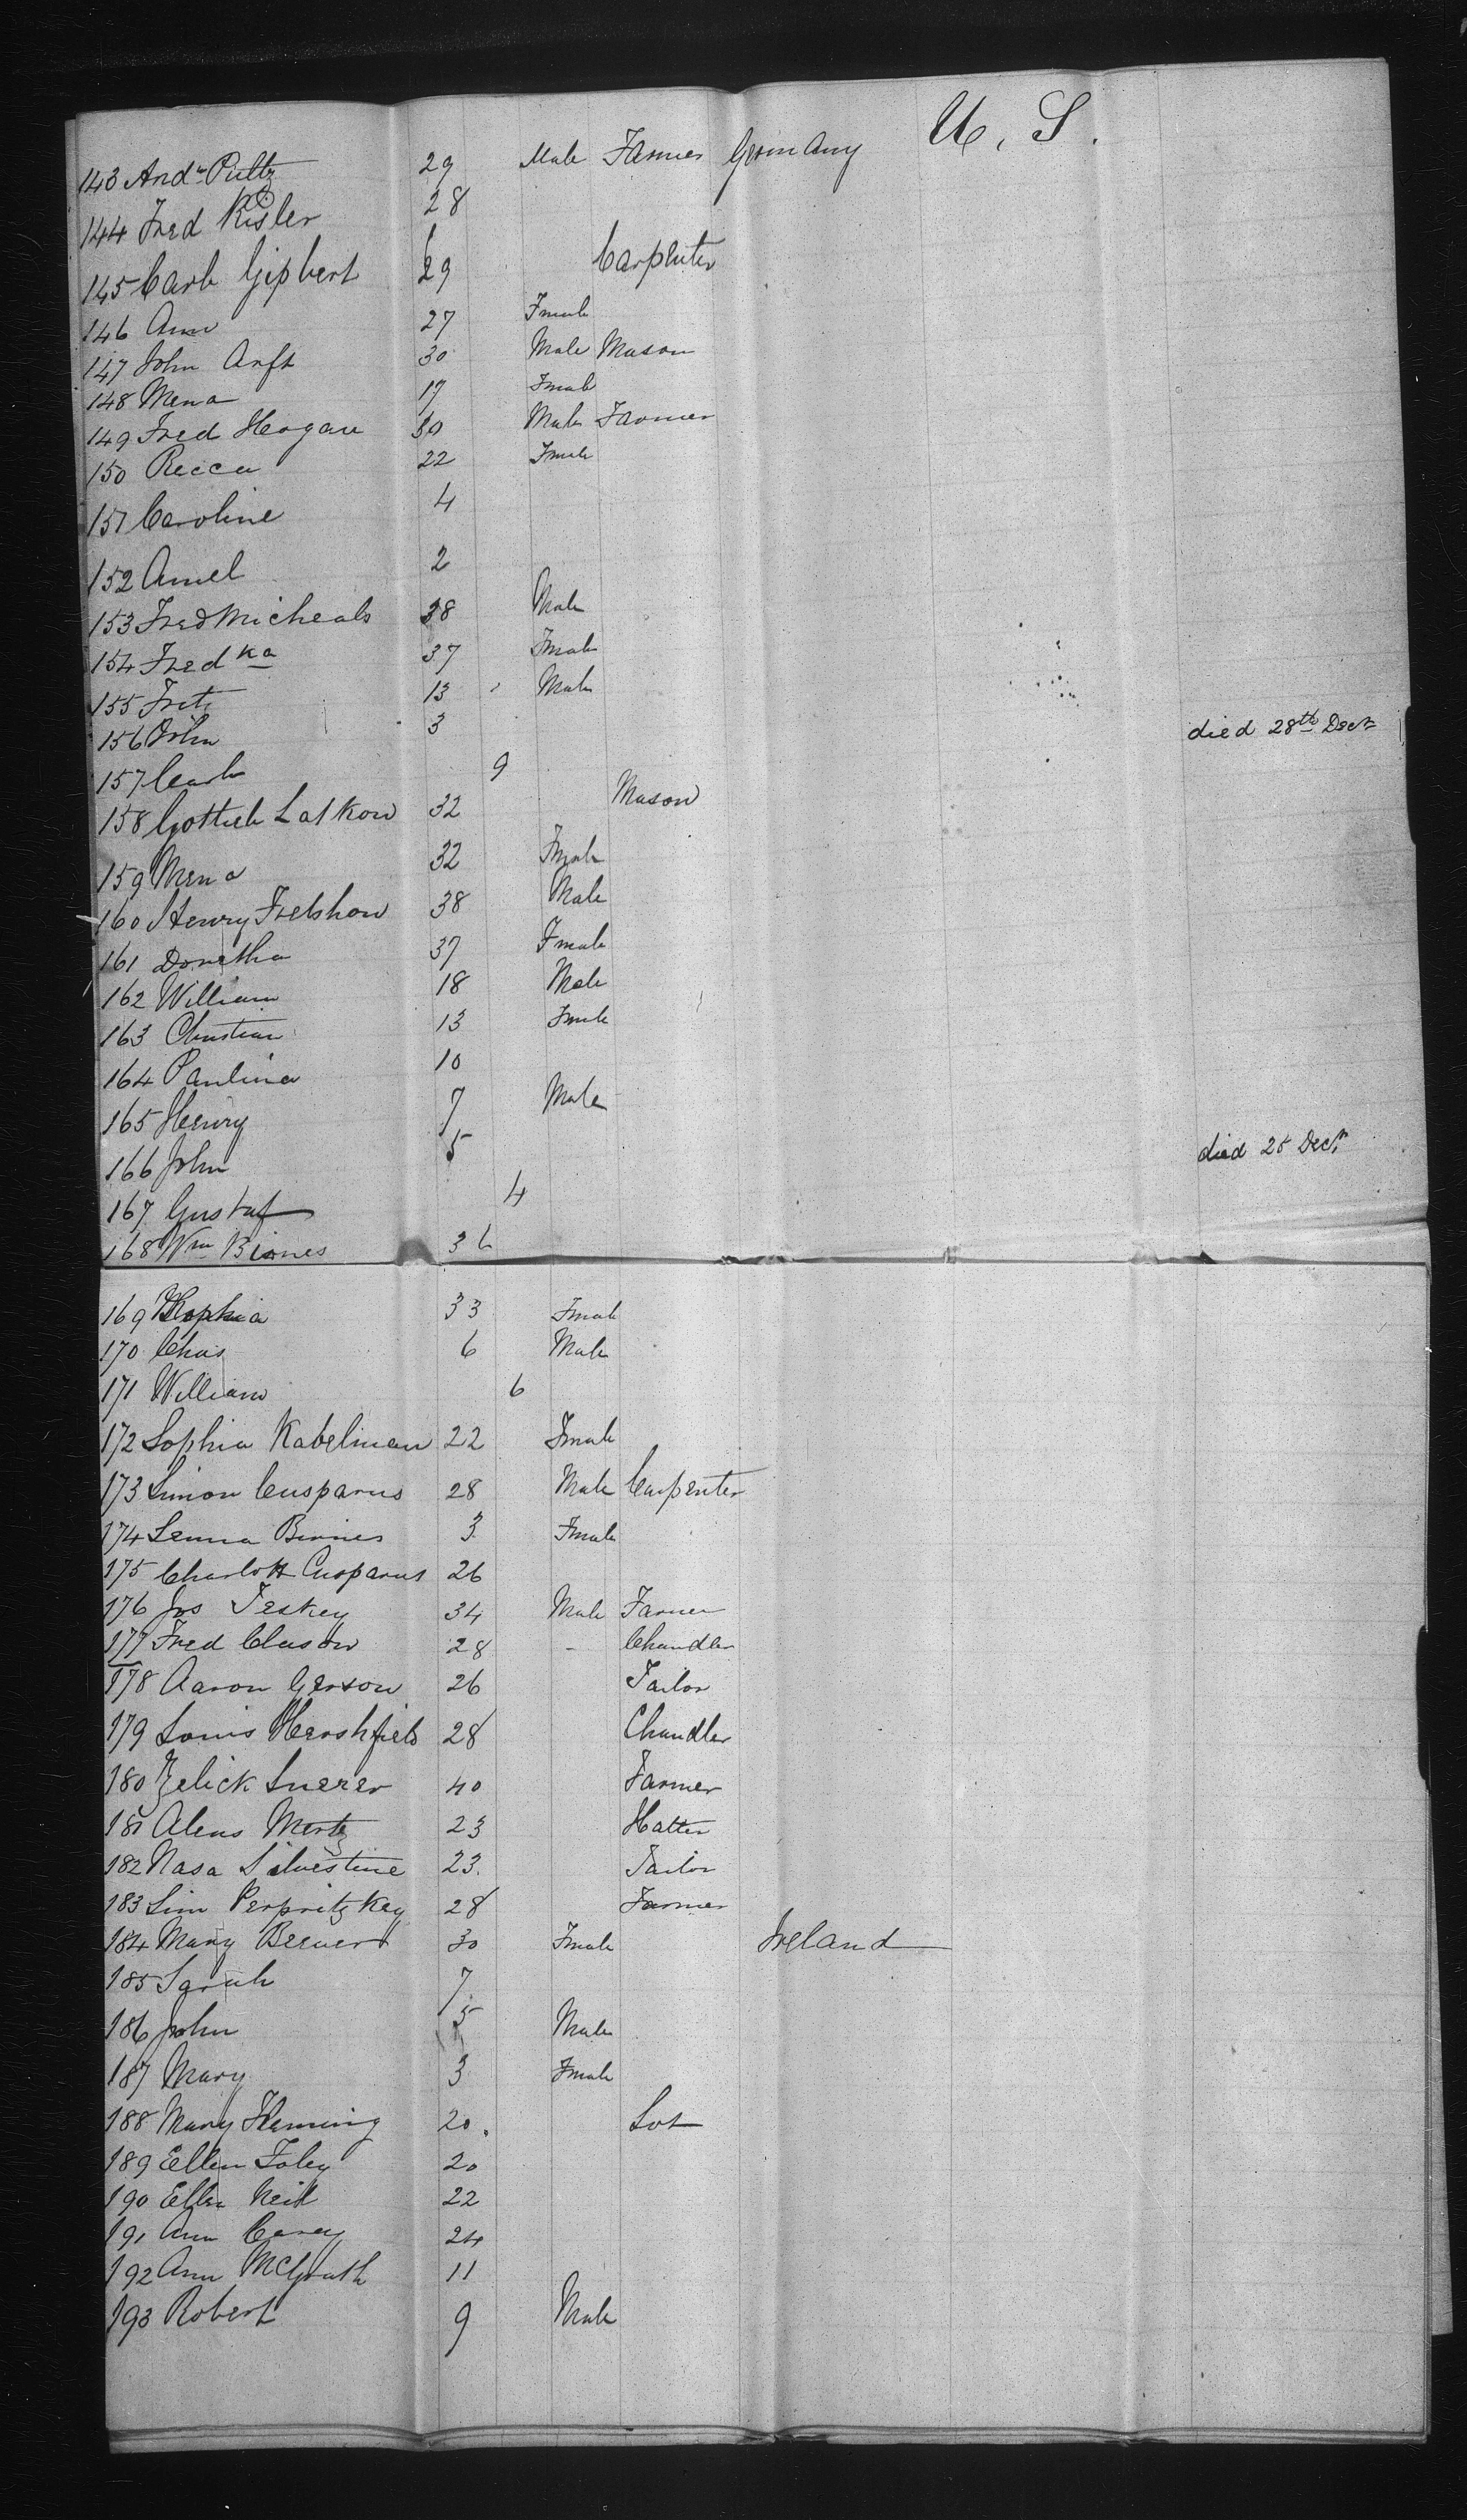 U. S.
143 Andw Pultz 29 Male Farmer Germany
144 Fred Kisler 28
145 Carl Gipbert 29 Carpenter
146 Ann 27 Fmale
147 John Arft 30 Male Mason
148 Mena 17 Fmale
149 Fred Horgau 30 Male Farmer
150 Recca 22 Fmale
151 Caroline 4
152 Amel 2
153 Fred Micheals 38 Male
154 Fredka 37 Fmale
155 Fritz 13 Male
156 John 3 died 28th Decr
157 Carl 9
158 Gottieb Latkow 32 Mason
159 Mena 32 Fmale
160 Henry Frelshow 38 Male
161 Doretha 37 Fmale
162 William 18 Male
163 Christian 13 Fmale
164 Paulina 10
165 Henry 7 Male
166 John 5 died 25 Decr
167 Gustaf 4
168 Wm Bisnes 36
169 Sophia 33 Fmale
170 Chas 6 Male
171 William 6
172 Sophia Kabelman 22 Fmale
173 Simon Cusparus 28 Male Carpenter
174 Lenna Binnes 3 Fmale
175 Charlott Cusparus 26
176 Jos Teskey 34 Male Farmer
177 Fred Cluson 28 - Chandler
178 Aaron Gerson 26 Tailor
179 Louis Hershfield 28 Chandler
180 Zelick Snerer 40 Farmer
181 Alens Mertz 23 Hatter
182 Nasa Silvestine 23 Tailor
183 Sim Perpritzkey 28 Farmer
184 Mary Brewer 30 Fmale Ireland
185 Sarah 7
186 John 5 Male
187 Mary 3 Fmale
188 Mary Fleming 20 Svt
189 Ellen Foley 20
190 Ellen Neil 22
191 Ann Carey 24
192 Ann McGrath 11
193 Robert 9 Male